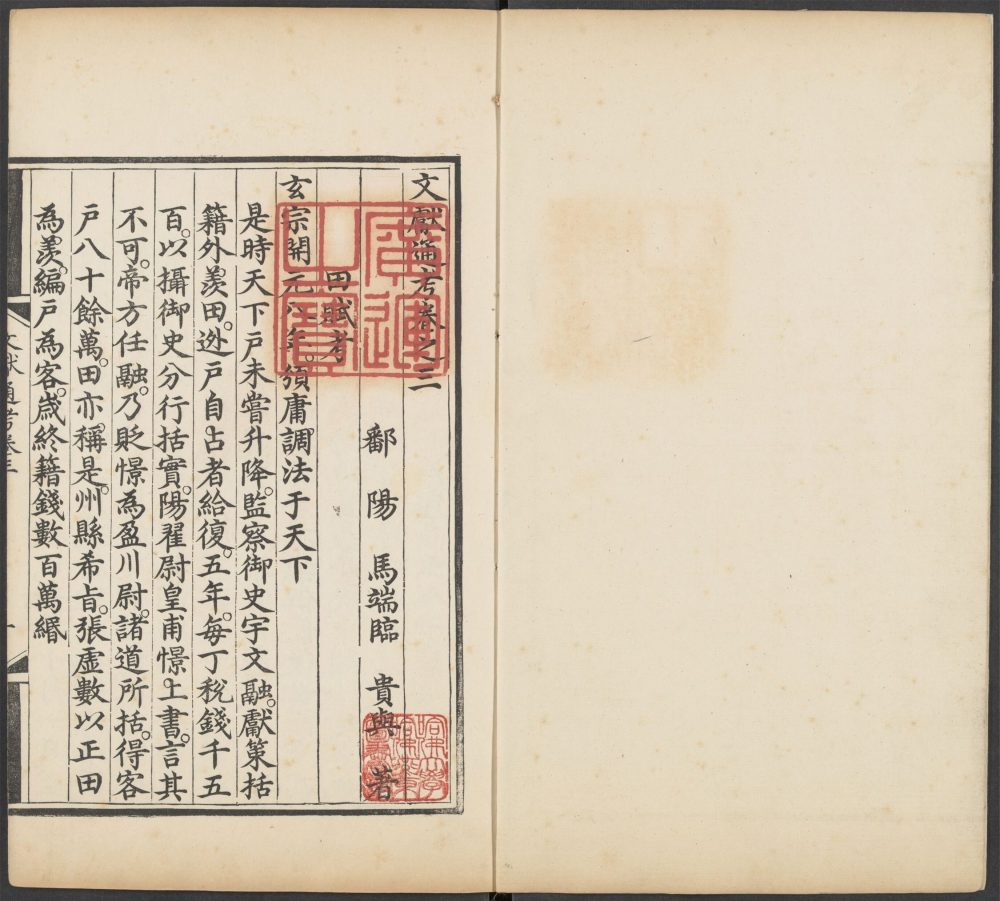 文獻通考卷之三
鄱陽馬端臨貴與著
田賦考
玄宗開元八年。頒庸調法于天下
是時天下戶未嘗升降。監察御史宇文融。獻策括
籍外羨田。逃戶自占者給復。五年。每丁稅錢千五
百。以攝御史分行括實。陽翟尉皇甫憬。上書。言其
不可。帝方任融。乃貶憬為盈川尉。諸道所括。得客
戶八十餘萬。田亦稱是。州縣希旨。張虛數以正田
為羨。編戶為客。歲終籍錢數百萬緡
文獻通考卷三
一
廣運之寶